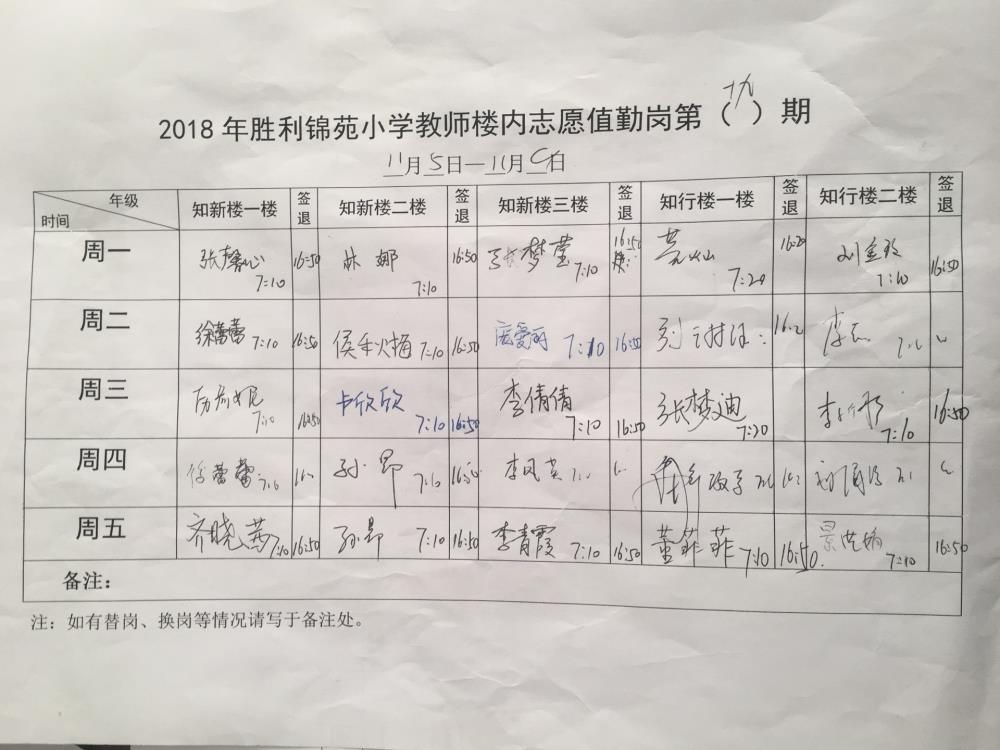 2018年胜利锦苑小学教师楼内志愿值勤岗第（九）期
11月5日—11月9日
年级 时间 知新楼一楼 签退 知新楼二楼 签退 知新楼三楼 签退 知行楼一楼 签退 知行楼二楼 签退
周一 张馨心 7:10 16:50 林娜 7:10 16:50 张梦莹 7:10 16:50 7:20 16:20 7:10 16:50
周二 徐蕾蕾 7:10 16:50 侯秋梅 7:10 16:50 庞爱丽 7:10 16:50 16:2
周三 7:10 16:50 卡欣欣 7:10 16:50 李倩倩 7:10 16:50 张梦迪 7:20 7:10 16:50
周四 徐蕾蕾 孙昂 李风英
周五 齐晓茜 7:10 16:50 孙昂 7:10 16:50 李青霞 7:10 16:50 董菲菲 7:10 16:50. 7:10 16:50
备注：
注：如有替岗、换岗等情况请写于备注处。